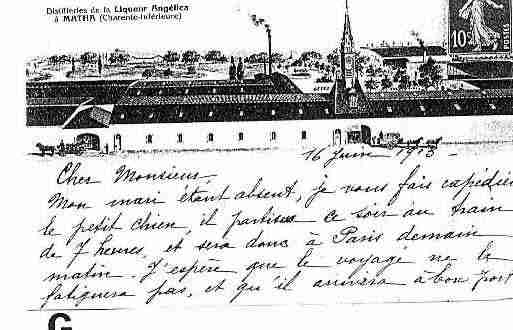 Distilleries de la Liqueur Angélica
à MATHA (Charente-Inférieure)
10c
POSTES
16 Juin 1913 -
Cher Monsieur.
Mon mari étant absent, je vous fais expédier
le petit chien, il partira ce soir au train
de 7 heures, et sera donc à Paris demain
matin. J'espère que le voyage ne le
fatiguera pas, et qu'il arrivera à bon port
G